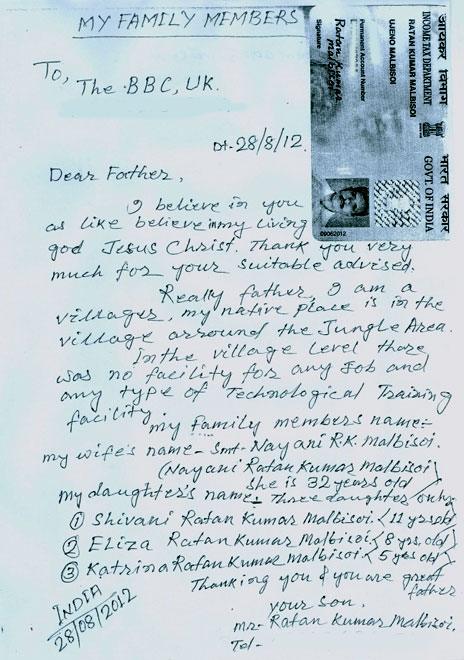 MY FAMILY MEMBERS
To,
The BBC, UK.
Dt- 28/8/12.
Dear Father,
I believe in you
as like believe in my living
god Jesus Christ. Thank you very
much for your suitable advised.
Really father, I am a
villager, my native place is in the
village arround the Jungle Area.
In the village level there
was no facility for any Job and
any type of Technological Training
facility
my family members name:-
my wife's name - Smt- Nayani R.K. Malbisoi.
(Nayani Ratan Kumar Malbisoi)
she is 32 years old
my daughter's name:- Three daughter only
① Shivani Ratan Kumar Malbisoi. < 11 yrs old
② Eliza Ratan Kumar Malbisoi < 8 yrs. old
③ Katrina Ratan Kumar Malbisoi < 5 yrs old
Thanking you & you are great
father
your son.
Mr- Ratan Kumar Malbisoi.
Tel-
INDIA
28/08/2012
आयकर विभाग
भारत सरकार
INCOME TAX DEPARTMENT
GOVT. OF INDIA
RATAN KUMAR MALBISOI
UJENO MALBISOI
Permanent Account Number
Ratan Kumar
Malbisoi
Signature
09062012